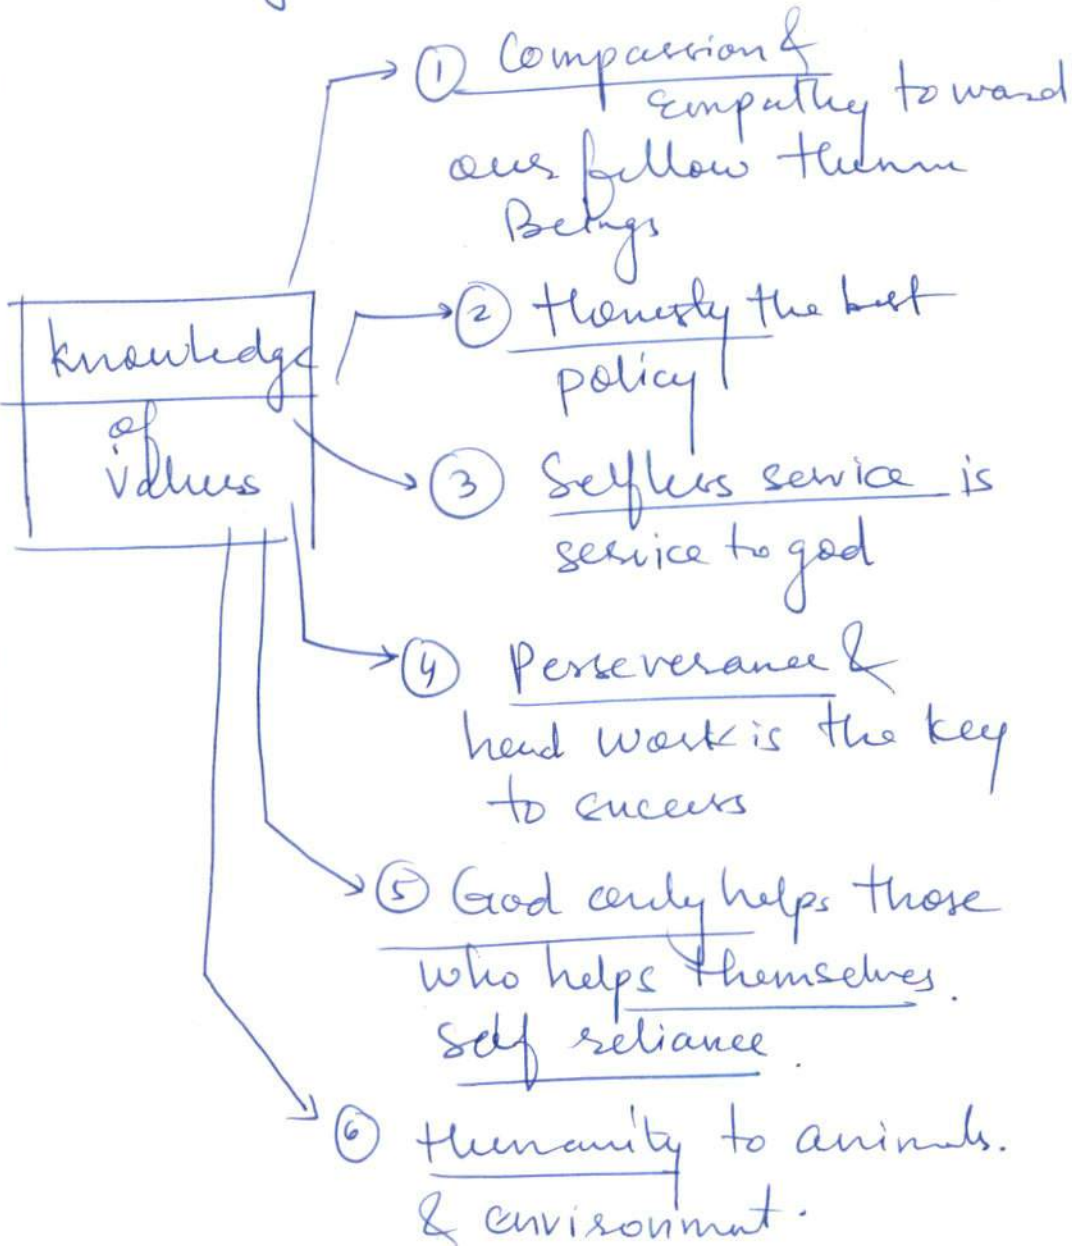 ① Compassion &
Empathy toward
our fellow Human
Beings
knowledge
of
values
② Honesty the best
policy
③ Selfless service is
service to god
④ Perseverance &
hard work is the key
to success
⑤ God only helps those
who helps themselves.
Self reliance.
⑥ Humanity to animals.
& environment.